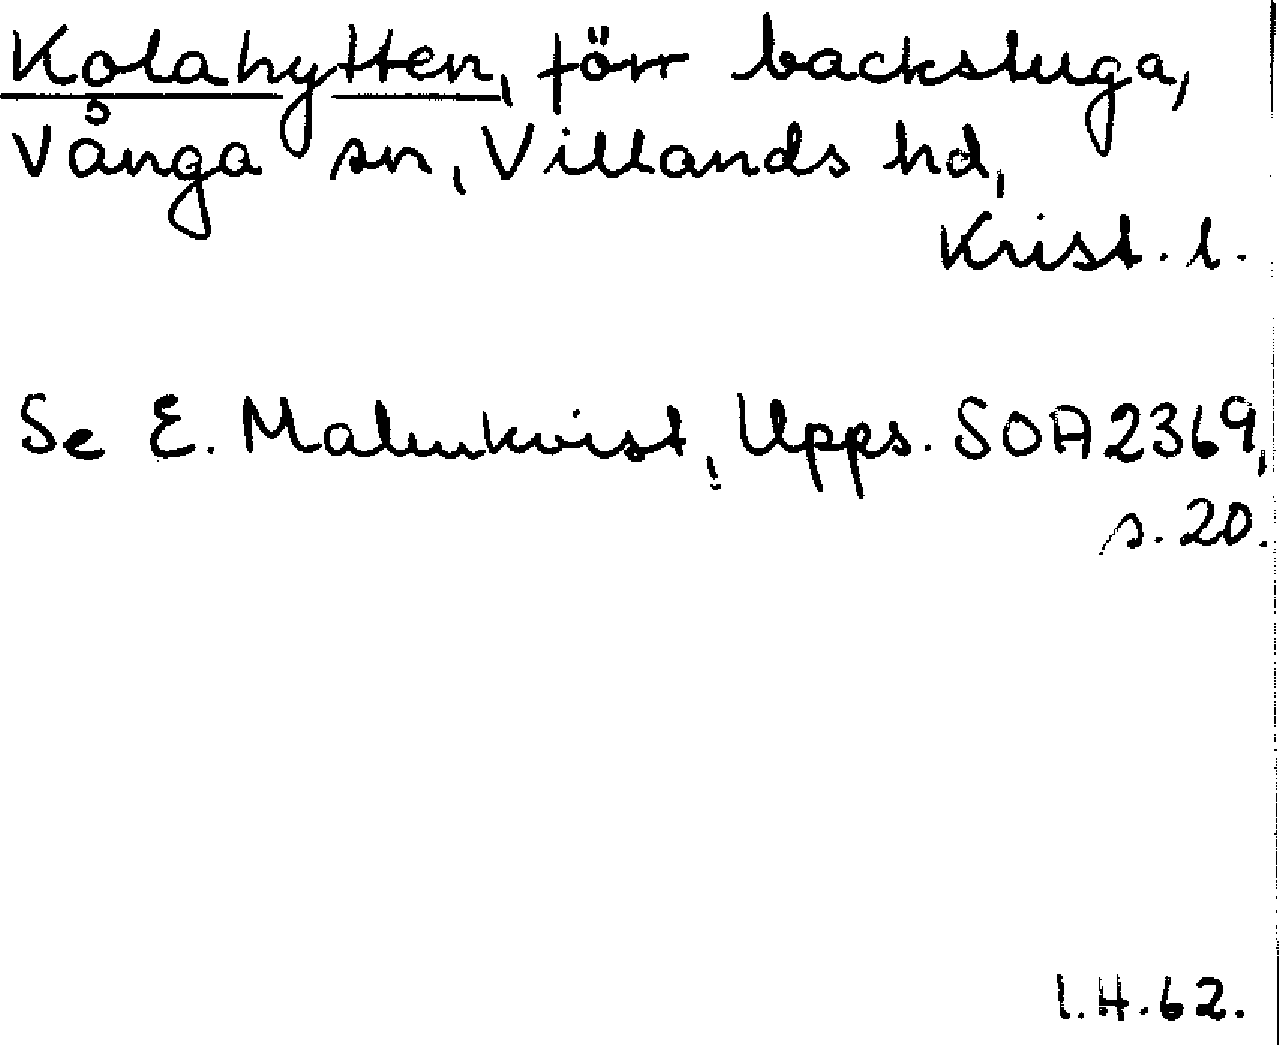 Kolahytten, förr backstuga,
Vånga sn, Villands hd,
Krist. l.
Se E. Malmkvist, Upps. SOA 2369,
s. 20.
I.H. 62.